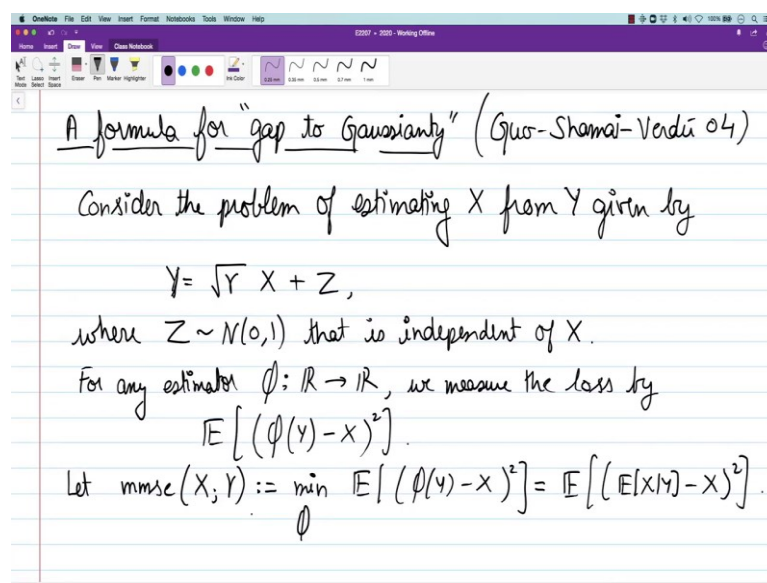 OneNote File Edit View Insert Format Notebooks Tools Window Help 100%
E2207 - 2020 - Working Offline
Home Insert Draw View Class Notebook
Text Mode Lasso Select Insert Space Eraser Pen Marker Highlighter Ink Color 0.25 mm 0.35 mm 0.5 mm 0.7 mm 1 mm
A formula for "gap to Gaussianty" (Guo-Shamai-Verdú 04)
Consider the problem of estimating X from Y given by
Y = √γ X + Z,
where Z ~ N(0,1) that is independent of X.
For any estimator φ: ℝ → ℝ, we measure the loss by
𝔼[(φ(Y)-X)²].
Let mmse(X; γ) := min 𝔼[(φ(Y)-X)²] = 𝔼[(𝔼[X|Y]-X)²].
φ